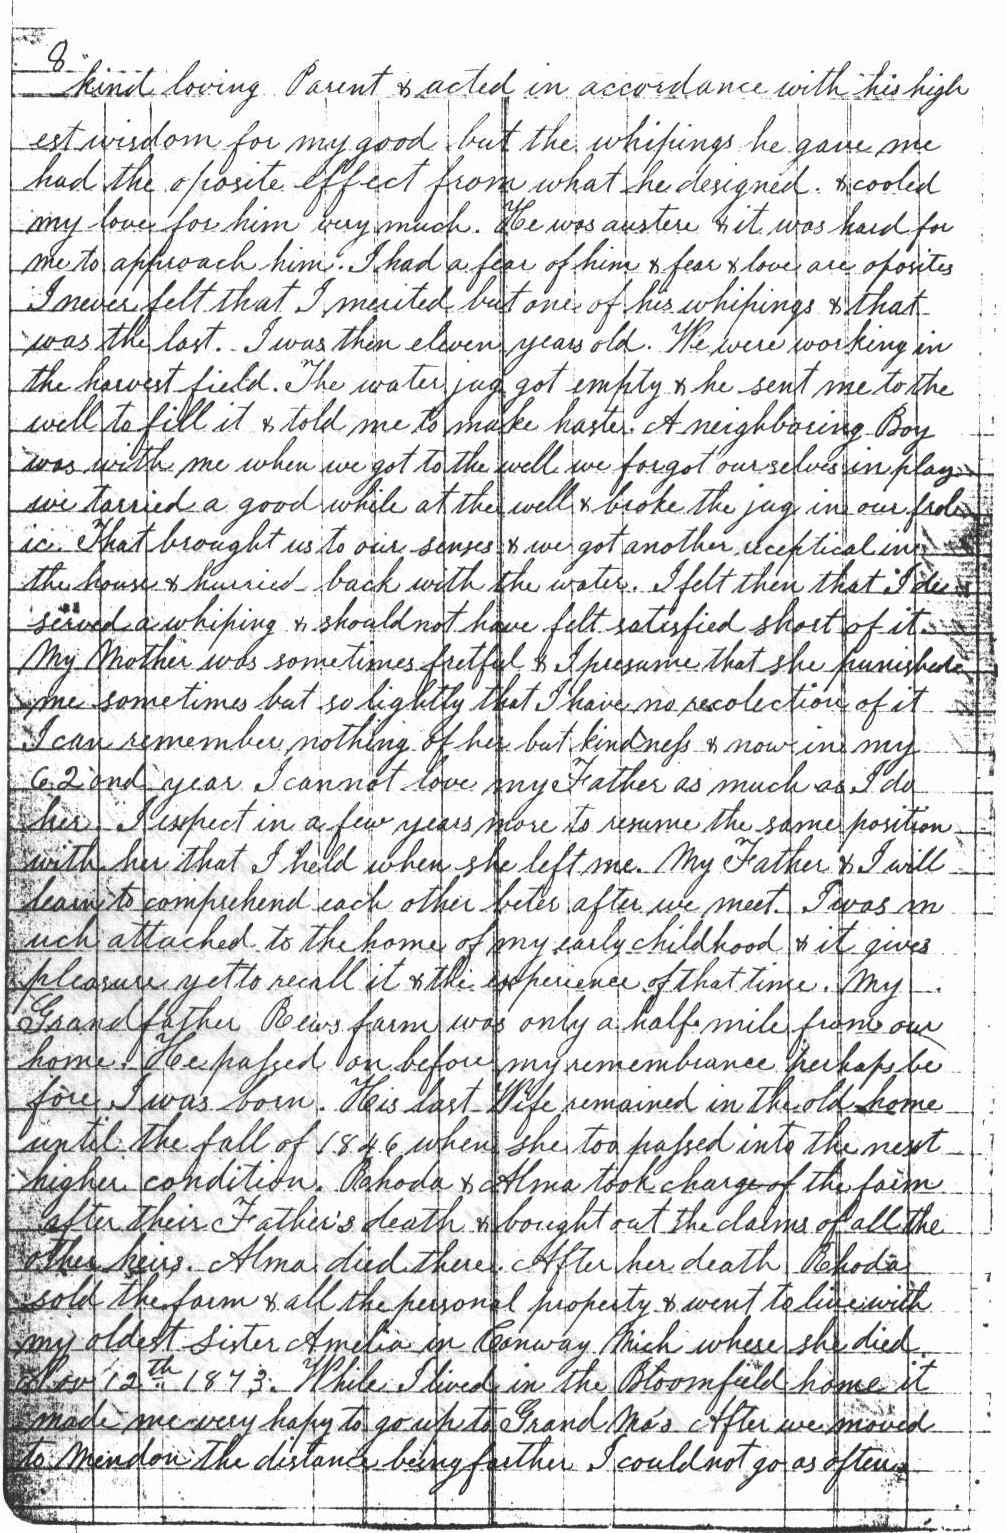 8
kind loving Parent & acted in accordance with his high
est wisdom for my good but the whipings he gave me
had the oposite effect from what he designed. & cooled
my love for him very much. He was austere & it was hard for
me to approach him. I had a fear of him & fear & love are oposites
I never felt that I merited but one of his whipings & that
was the last. I was then eleven years old. We were working in
the harvest field. The water jug got empty & he sent me to the
well to fill it & told me to make haste. A neighboring Boy
was with me when we got to the well we forgot ourselves in play
we tarried a good while at the well & broke the jug in our frol
ic. That brought us to our senses & we got another receptical in
the house & hurried back with the water. I felt then that I de
served a whiping & should not have felt satisfied short of it.
My Mother was sometimes fretful & I presume that she punished
me sometimes but so lightly that I have no recolection of it
I can remember nothing of her but kindness & now in my
62ond year I cannot love my Father as much as I do
her. I expect in a few years more to resume the same position
with her that I held when she left me. My Father & I will
learn to comprehend each other beter after we meet. I was m
uch attached to the home of my early childhood & it gives
pleasure yet to recall it & the experience of that time. My
Grandfather Rews farm was only a half mile from our
home. He passed on before my remembrance perhaps be
fore I was born. His last Wife remained in the old home
until the fall of 1846 when she too passed into the next
higher condition. Rhoda & Alma took charge of the farm
after their Father's death & bought out the claims of all the
other heirs. Alma died there. After her death Rhoda
sold the farm & all the personal property & went to live with
my oldest Sister Amelia in Conway Mich where she died
Nov 12th 1873. While I lived in the Bloomfield home it
made me very hapy to go up to Grand Ma's After we moved
to Mendon the distance being farther I could not go as often